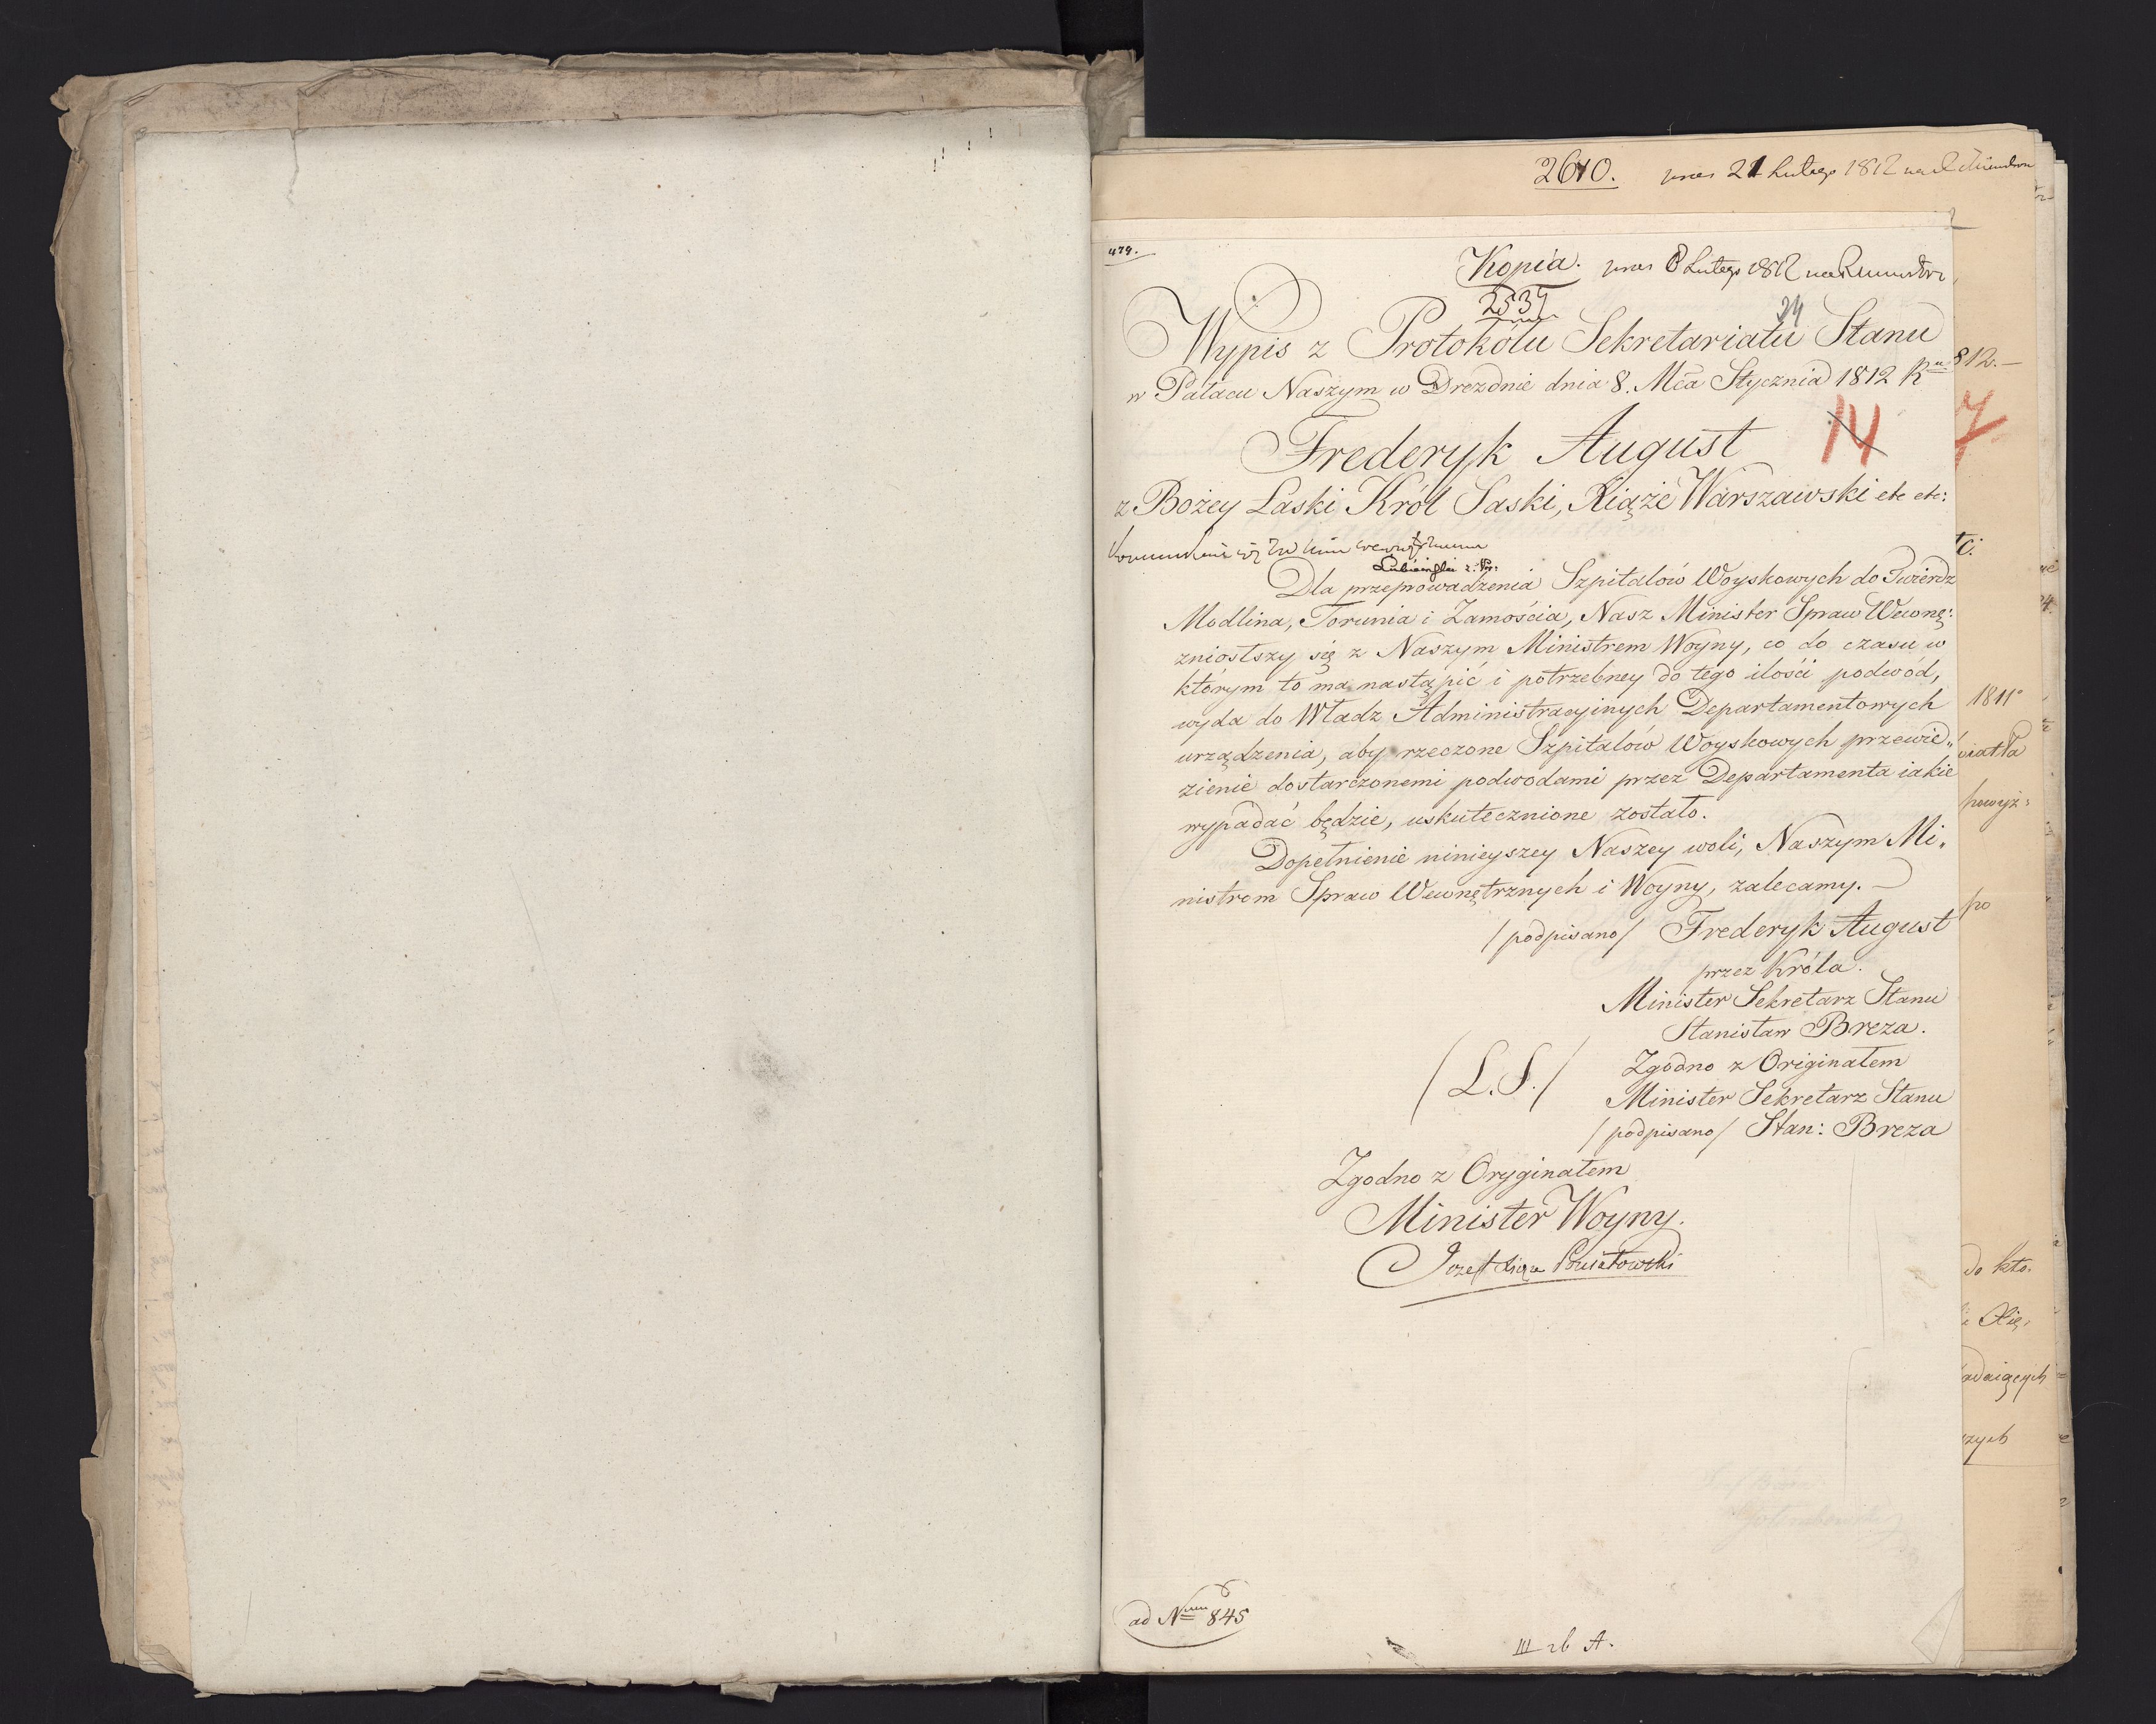 2610. pres 21 Lutego 1812
474.
Kopia. pres 8 Lutego 1812
2537
24
Wypis z Protokółu Sekretariatu Stanu
w Pałacu Naszym w Dreznie dnia 8. Mca Stycznia 1812 R
812.
14
7
Frederyk August
z Bożey Łaski Król Saski, Xiąże Warszawski etc etc:
Dla przeprowadzenia Szpitalów Woyskowych do Twierdz
Modlina, Torunia i Zamościa, Nasz Minister Spraw Wewnę:
zniosłszy się z Naszym Ministrem Woyny, co do czasu w
którym to ma nastąpić i potrzebney do tego ilości podwód,
wyda do Władz Administracyinych Departamentowych
urządzenia, aby rzeczone Szpitalów Woyskowych przewie„
zienie dostarczonemi podwodami przez Departamenta iakie
wypadać będzie, uskutecznione zostało.
Dopełnienie ninieyszey Naszey woli, Naszym Mi„
nistrom Spraw Wewnętrznych i Woyny, zalecamy. —
/podpisano/ Frederyk August
przez Króla.
Minister Sekretarz Stanu
Stanisław Breza.
/L.S./ Zgodno z Originałem
Minister Sekretarz Stanu
/podpisano/ Stan: Breza
Zgodno z Oryginałem
Minister Woyny.
Jozef Xiąże Poniatowski
ad N 845
III
1811
powyż:
po
do kto.